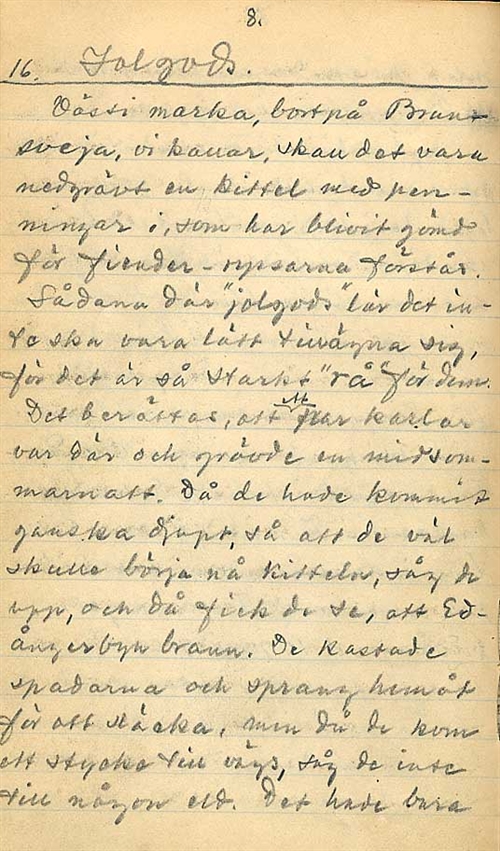 8.
16. Jolgods.
Västi marka, bort på Brun-
sveja, vi kallar, skall det vara
nedgrävt en kittel med pen-
ningar i, som har blivit gömd
för fiender - ryssarna förstås.
Sådana där "jolgods" lär det in-
te ska vara lätt tillägna sig,
för det är så starkt "rå" för dem.
Det berättas, att ett par karlar
var där och grävde en midsom-
marnatt. Då de hade kommit
ganska djupt, så att de väl
skulle börja nå kitteln, såg de
upp, och då fick de se, att Ed-
ångerbyn brann. De kastade
spadarna och sprang hemåt
för att släcka, men då de kom
ett stycke till vägs, såg de inte
till någon eld. Det hade bara